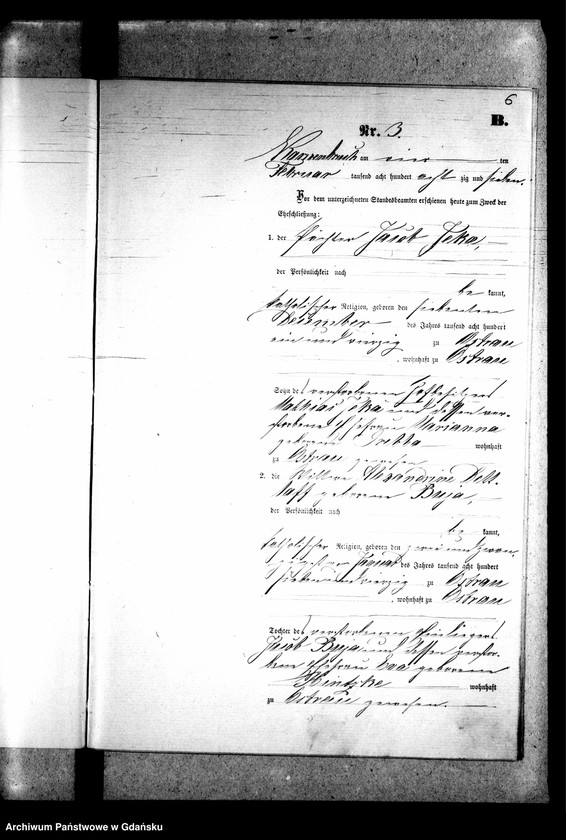 6
B.
Nr. 3.
am vier ten
Februar tausend acht hundert acht zig und sieben.
Vor dem unterzeichneten Standesbeamten erschienen heute zum Zweck der
Eheschließung:
1. der Pächter Jacob Jeka,
der Persönlichkeit nach
be kannt,
katholischer Religion, geboren den siebenten
Dezember des Jahres tausend acht hundert
ein und vierzig zu Ostrau
, wohnhaft zu Ostrau
Sohn des verstorbenen Hofbesitzers
Mathias Jeka und dessen ver-
storbene Ehefrau Marianna
geborene wohnhaft
zu Ostrau gewesen
2. die Wittwe Alexandrine
geborene Buja,
der Persönlichkeit nach
be kannt,
katholischer Religion, geboren den zwei und zwan-
zigsten Januar des Jahres tausend acht hundert
sieben und vierzig zu Ostrau
, wohnhaft zu Ostrau
Tochter des verstorbenen Einliegers
Jacob Buja und dessen verstor-
benen Ehefrau Eva geborene
Hintzke wohnhaft
zu Ostrau gewesen.
Archiwum Państwowe w Gdańsku